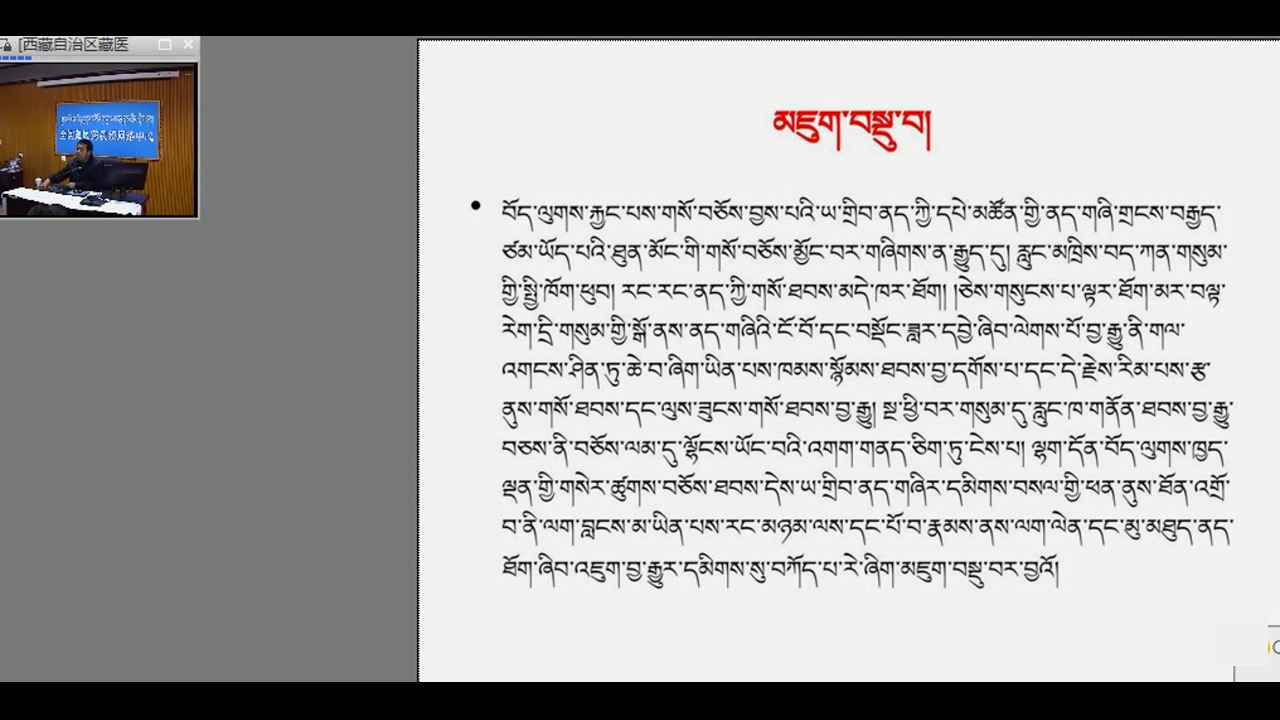 [西藏自治区藏医
མཇུག་བསྡུ་བ།
• བོད་ལུགས་རྐྱང་པས་གསོ་བཅོས་བྱས་པའི་ཡ་གྲིབ་ནད་ཀྱི་དཔེ་མཚོན་གྱི་ནད་གཞི་གྲངས་བརྒྱད་
ཙམ་ཡོད་པའི་ཐུན་མོང་གི་གསོ་བཅོས་མྱོང་བར་གཞིགས་ན་རྒྱུད་དུ། རླུང་མཁྲིས་བད་ཀན་གསུམ་
གྱི་སྤྱི་ཁོག་ཕུབ། རང་རང་ནད་ཀྱི་གསོ་ཐབས་མདེ་ཁར་ཐོག། །ཅེས་གསུངས་པ་ལྟར་ཐོག་མར་བལྟ་
རེག་དྲི་གསུམ་གྱི་སྒོ་ནས་ནད་གཞིའི་ངོ་བོ་དང་བསྡོང་ཟླར་དབྱེ་ཞིབ་ལེགས་པོ་བྱ་རྒྱུ་ནི་གལ་
འགངས་ཤིན་ཏུ་ཆེ་བ་ཞིག་ཡིན་པས་ཁམས་སྙོམས་ཐབས་བྱ་དགོས་པ་དང་དེ་རྗེས་རིམ་པས་རྩ་
ནུས་གསོ་ཐབས་དང་ལུས་ཟུངས་གསོ་ཐབས་བྱ་རྒྱུ། སྔ་ཕྱི་བར་གསུམ་དུ་རླུང་ཁ་གནོན་ཐབས་བྱ་རྒྱུ་
བཅས་ནི་བཅོས་ལམ་དུ་ལྷོངས་ཡོང་བའི་འགག་གནད་ཅིག་ཏུ་ངེས་པ། ལྷག་དོན་བོད་ལུགས་ཁྱད་
ལྡན་གྱི་གསེར་ཚུགས་བཅོས་ཐབས་དེས་ཡ་གྲིབ་ནད་གཞིར་དམིགས་བསལ་གྱི་ཕན་ནུས་ཐོན་འགྲོ་
བ་ནི་ལག་བླངས་མ་ཡིན་པས་རང་མཉམ་ལས་དང་པོ་བ་རྣམས་ནས་ལག་ལེན་དང་མུ་མཐུད་ནད་
ཐོག་ཞིབ་འཇུག་བྱ་རྒྱུར་དམིགས་སུ་བཀོད་པ་རེ་ཞིག་མཇུག་བསྡུ་བར་བྱའོ།